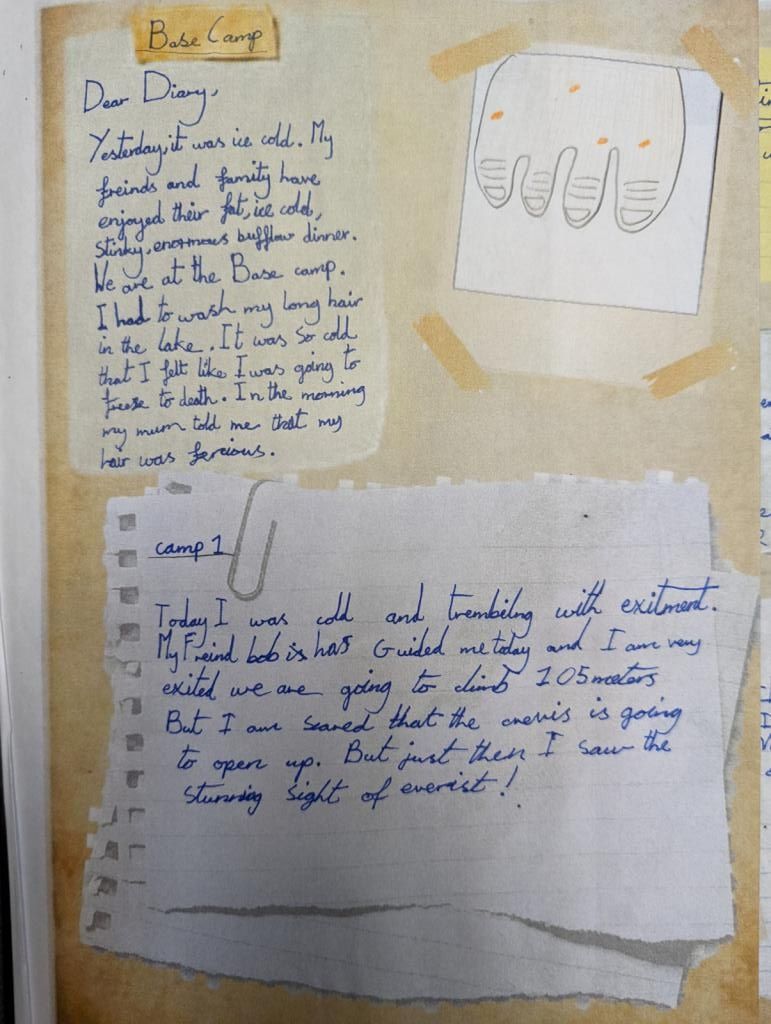 Base Camp
Dear Diary,
Yesterday, it was ice cold. My
freinds and family have
enjoyed their fat, ice cold,
stinky, enormous bufflow dinner.
We are at the Base camp.
I had to wash my long hair
in the lake. It was so cold
that I felt like I was going to
freeze to death. In the morning
my mum told me that my
hair was fercious.
camp 1
Today I was cold and trembilng with exitment.
My Freind bob is has Guided me today and I am very
exited we are going to climb 105 meters
But I am scared that the crevis is going
to open up. But just then I saw the
stunning sight of everist!